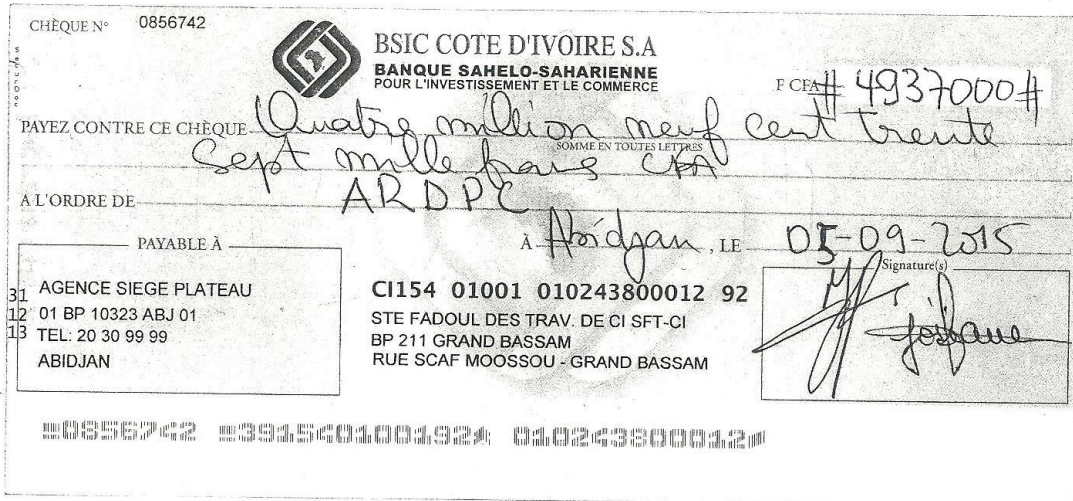 CHÈQUE N° 0856742
BSIC COTE D'IVOIRE S.A
BANQUE SAHELO-SAHARIENNE
POUR L'INVESTISSEMENT ET LE COMMERCE
F CFA # 4937000 #
PAYEZ CONTRE CE CHÈQUE Quatre million neuf cent trente
SOMME EN TOUTES LETTRES
Sept mille francs CFA
A L'ORDRE DE ARDPC
À Abidjan , LE 05-09-2015
PAYABLE À
Signature(s)
AGENCE SIEGE PLATEAU
01 BP 10323 ABJ 01
TEL: 20 30 99 99
ABIDJAN
31
12
13
CI154 01001 010243800012 92
STE FADOUL DES TRAV. DE CI SFT-CI
BP 211 GRAND BASSAM
RUE SCAF MOOSSOU - GRAND BASSAM
0856742 391540100192 010243800012